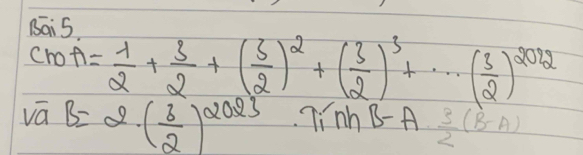 Bài 5.
Cho A = 1/2 + 3/2 + (3/2)^2 + (3/2)^3 + ... (3/2)^2022
và B = 2 . (3/2)^2023 . Tính B - A 3/2 (B - A)